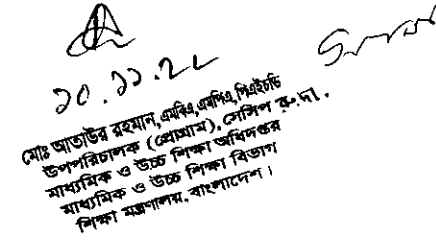 ২০.১১.২২
মোঃ আতাউর রহমান, এমবিএ, এমপিএ, পিএইচডি
উপপরিচালক (প্রোগ্রাম), সেসিপ রু.দা.
মাধ্যমিক ও উচ্চ শিক্ষা অধিদপ্তর
মাধ্যমিক ও উচ্চ শিক্ষা বিভাগ
শিক্ষা মন্ত্রণালয়, বাংলাদেশ।